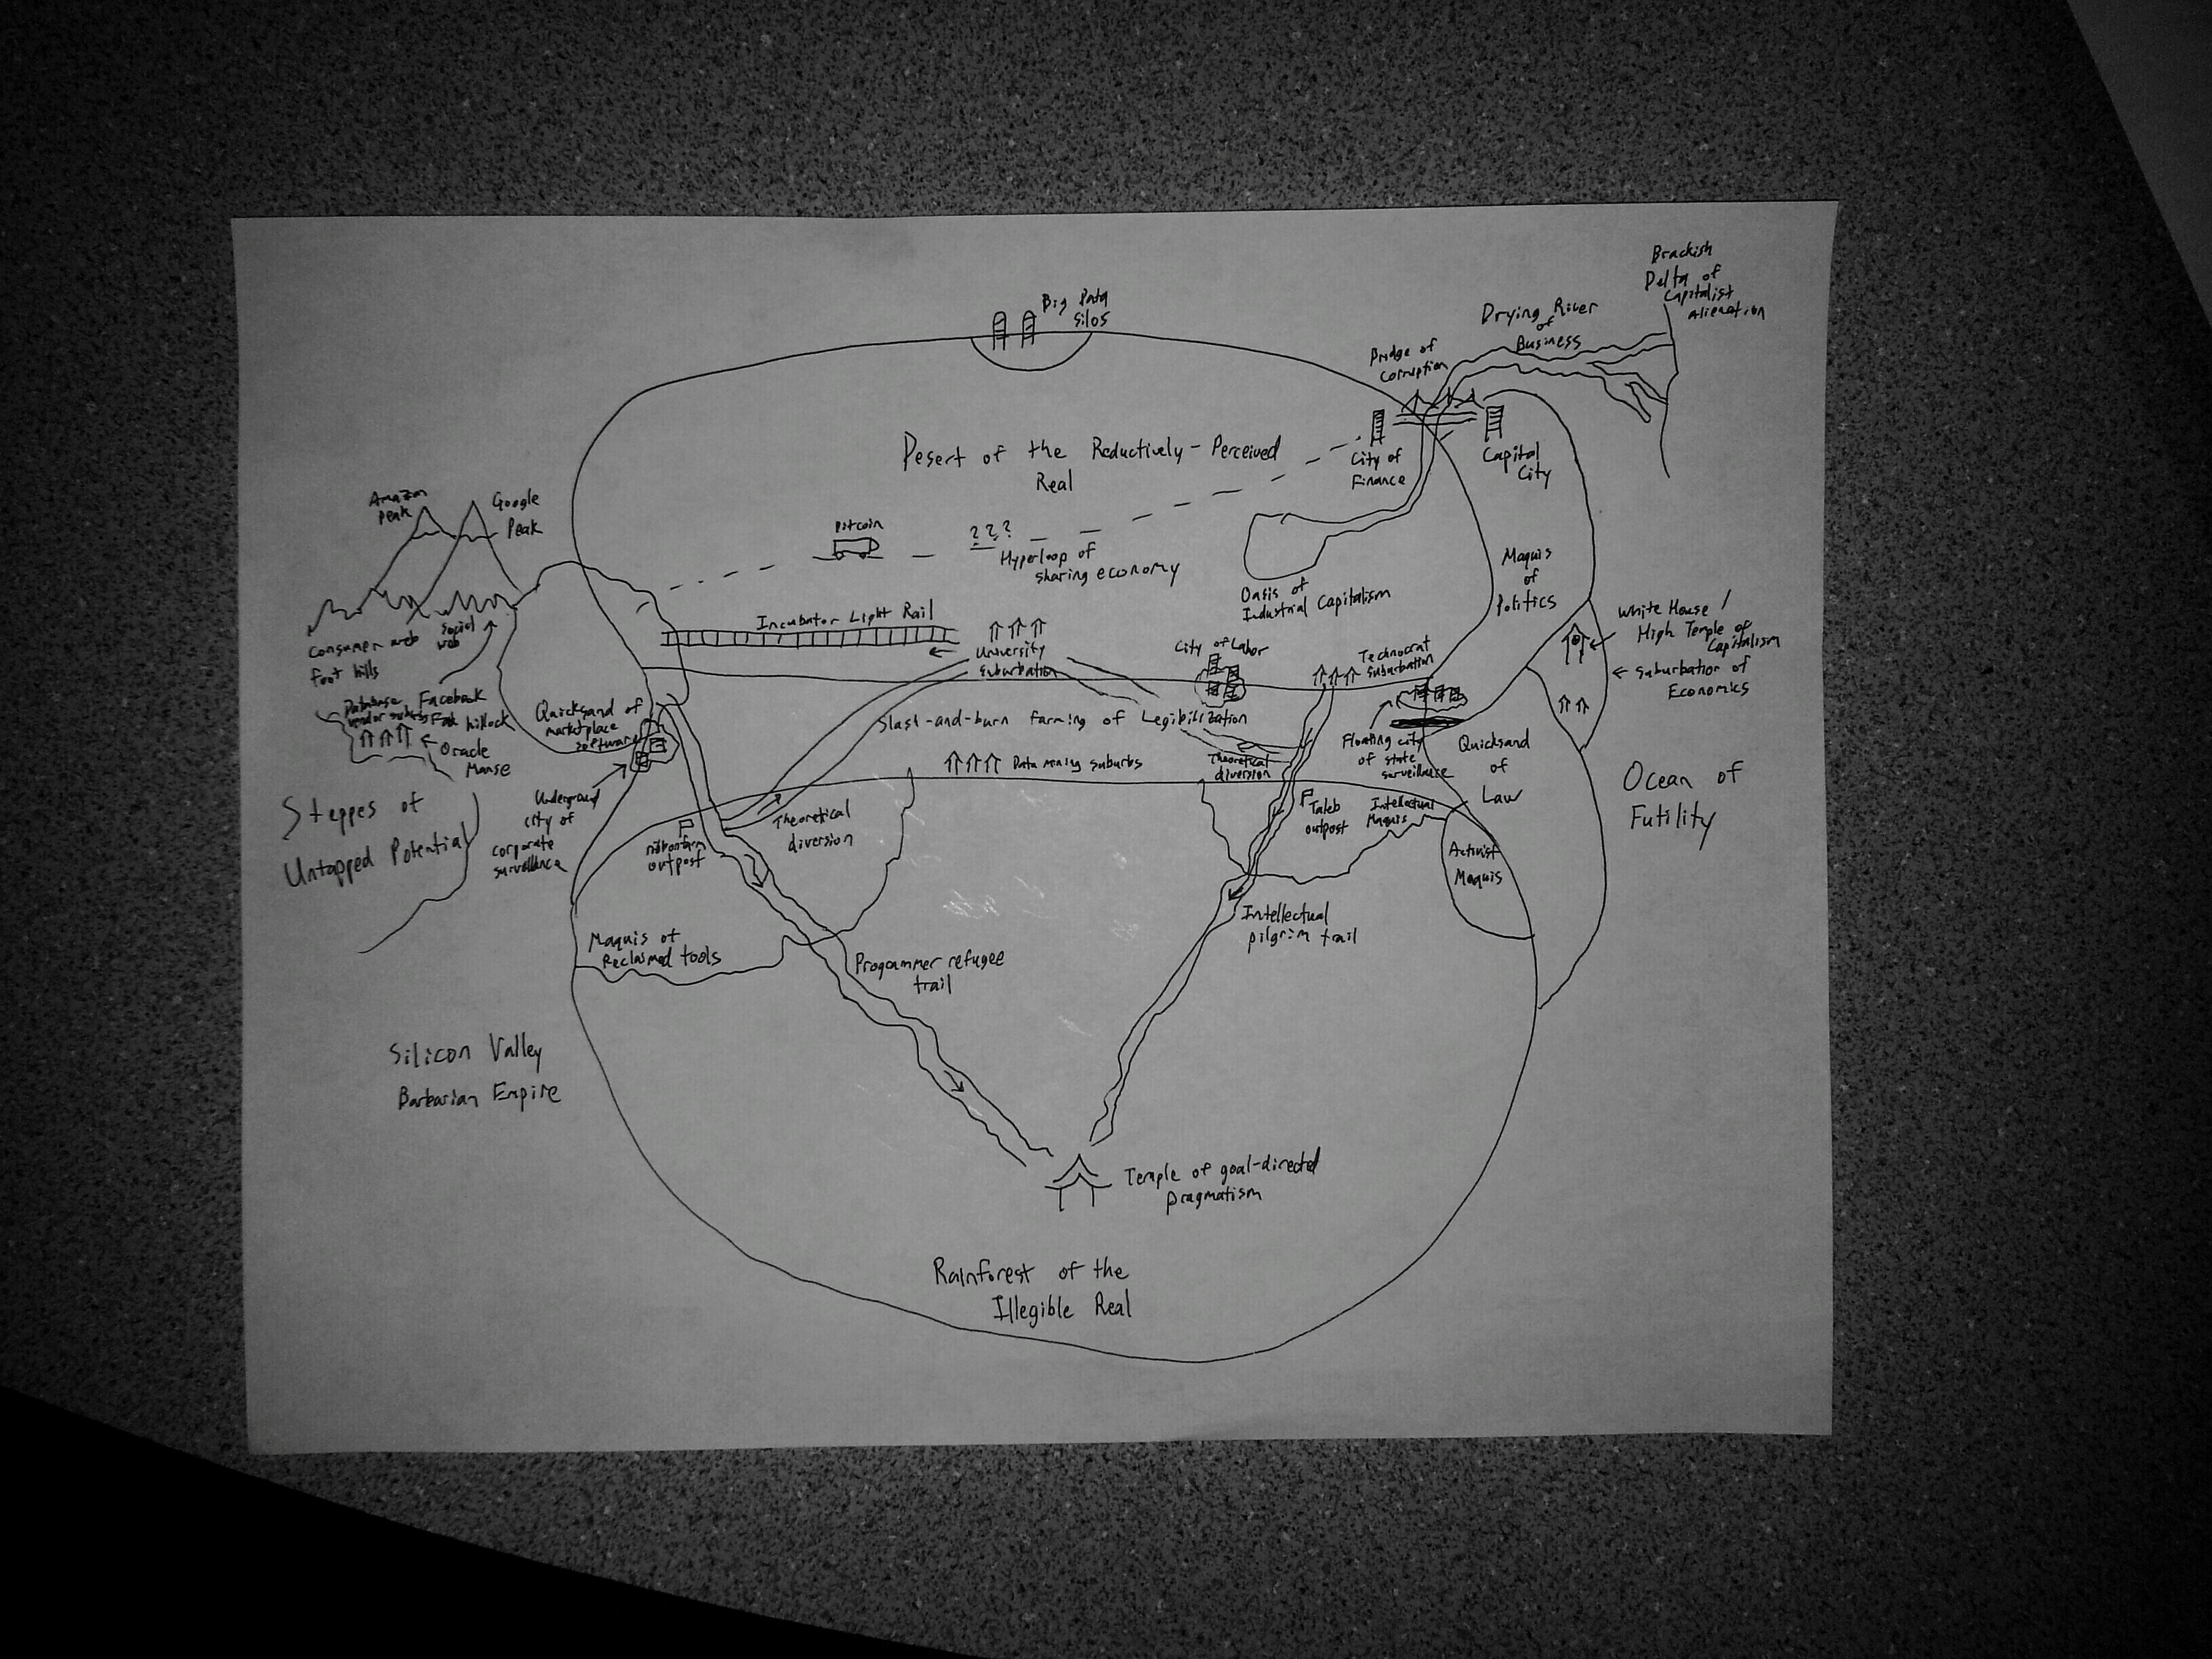 Big Data
Silos
Brackish
Delta of
Capitalist
Alienation
Drying River
of
Business
Bridge of
Corruption
City of
Finance
Capital
City
Desert of the Reductively-Perceived
Real
Amazon
Peak
Google
Peak
Bitcoin
???
Hyperloop of
sharing economy
Oasis of
Industrial Capitalism
Maquis
of
Politics
Incubator Light Rail
University
Suburbation
City of Labor
Technocrat
Suburbation
White House /
High Temple of
Capitalism
Suburbation of
Economics
Consumer web
foot hills
Social
web
Database
Vendor suburbs
Facebook
hillock
Oracle
Manse
Quicksand of
marketplace
software
Slash-and-burn farming of Legibilization
Data mining suburbs
Theoretical
diversion
Floating city
of state
surveillance
Quicksand
of
Law
Ocean of
Futility
Steppes of
Untapped Potential
Underground
city of
corporate
surveillance
outpost
Theoretical
diversion
Taleb
outpost
Intellectual
Maquis
Activist
Maquis
Maquis of
Reclaimed tools
Progammer refugee
trail
Intellectual
pilgrim trail
Silicon Valley
Barbarian Empire
Temple of goal-directed
pragmatism
Rainforest of the
Illegible Real